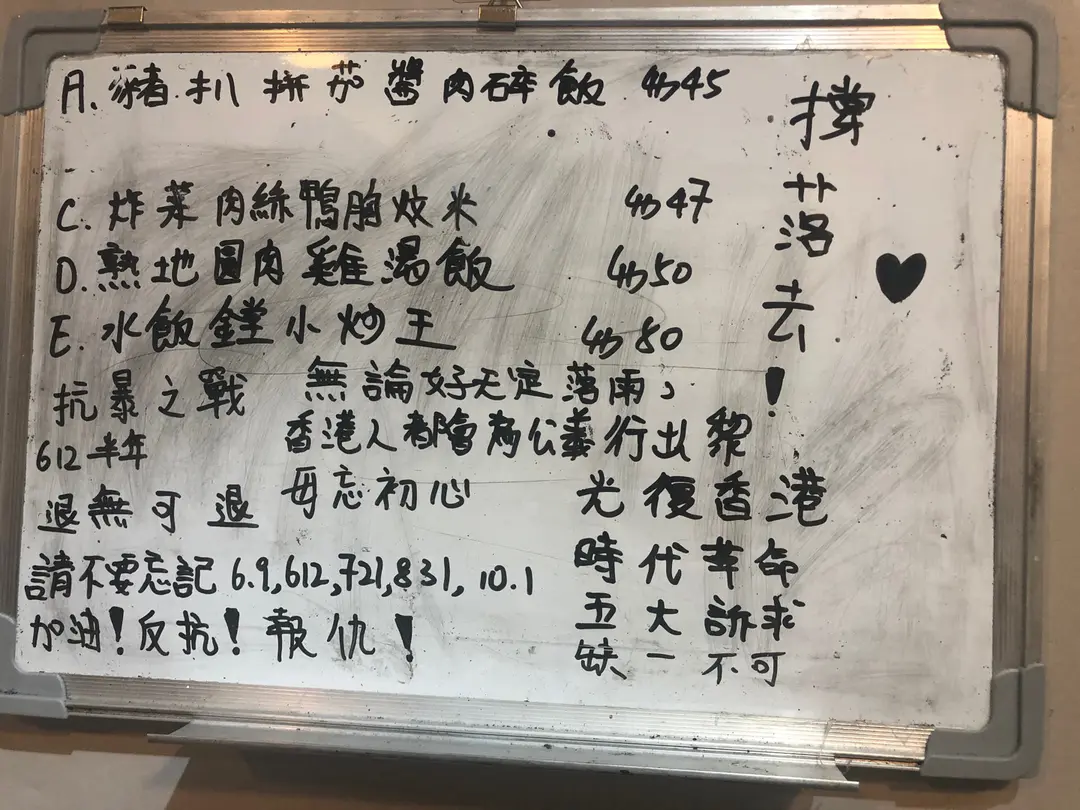 A. 豬扒拼茄醬肉碎飯 $45
C. 炸菜肉絲鴨胸炆米 $47
D. 熟地圓肉雞湯飯 $50
E. 水飯鏜小炒王 $80
撐落去!
♥
抗暴之戰
612半年
無論好天定落雨,
香港人都會為公義行出黎
退無可退
毋忘初心
請不要忘記 6.9,612,721,831, 10.1
加油!反抗!報仇!
光復香港
時代革命
五大訴求
缺一不可